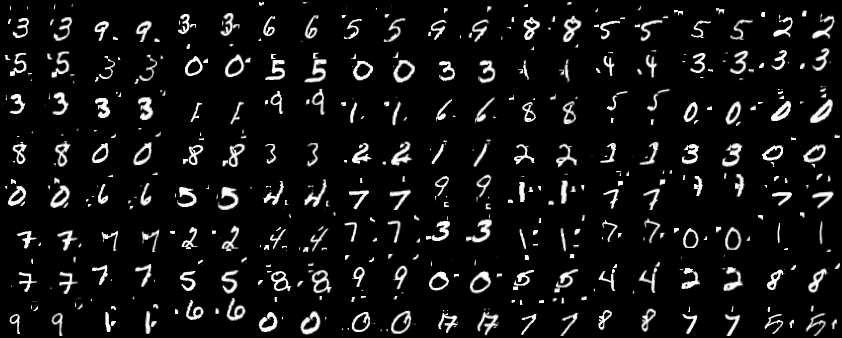 3 3 9 9 3 3 6 6 5 5 9 9 8 8 5 5 5 5 2 2
5 5 3 3 0 0 5 5 0 0 3 3 1 1 4 4 3 3 3 3
3 3 3 3 1 1 9 9 1 1 6 6 8 8 5 5 0 0 0 0
8 8 0 0 8 8 3 3 2 2 1 1 2 2 3 3 3 3 0 0
0 0 6 6 5 5 4 4 7 7 9 9 1 1 7 7 7 7 7 7
7 7 7 7 2 2 4 4 7 7 3 3 1 1 7 7 0 0 1 1
7 7 7 7 5 5 8 8 9 9 0 0 5 5 4 4 2 2 8 8
9 9 1 1 6 6 0 0 0 0 17 17 7 7 8 8 7 7 5 5